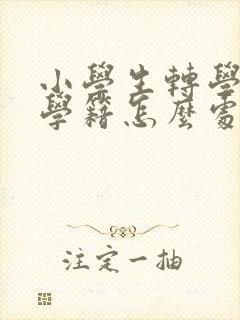 小學生轉學
學籍怎麼處
注定一抽